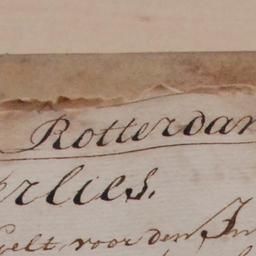 Rotterdam
rlies.
gelt voor den In